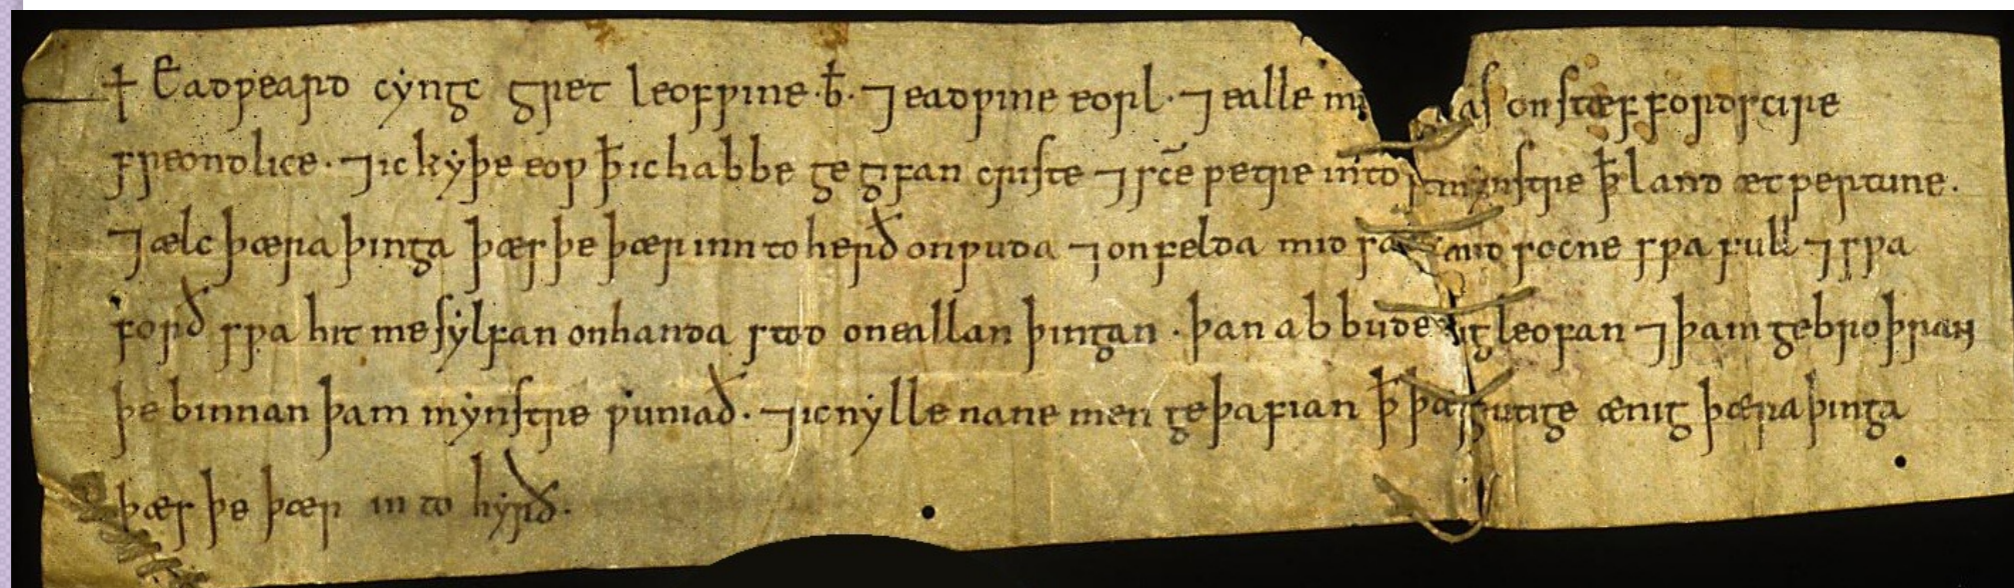 ✝ Eadƿeard cyngc gret leofƿine .b̄. ⁊ eadƿine eorl. ⁊ ealle on stæffordscire
freondlice. ⁊ ic kyþe eoƿ ꝥ ic habbe gegifan criste ⁊ sc̄e petre into ꝥ land æt pertune.
⁊ ælc þæra þinga þæs þe þær inn to herð on ƿuda ⁊ on felda mid mid socne sƿa full ⁊ sƿa
forð sƿa hit me sylfan on handa stod on eallan þingan . þan abbude bigleofan ⁊ þam gebroþran
þe binnan þam mynstre ƿuniað. ⁊ ic nylle nane men geþafian ꝥ þar utige ænig þæra þinga
þæs þe þær in to hyrð.